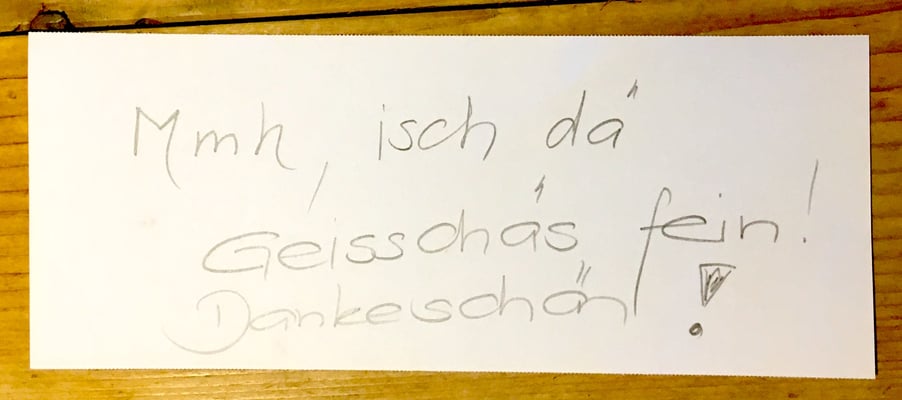 Mmh, isch dä
Geisschäs fein!
Dankeschön!